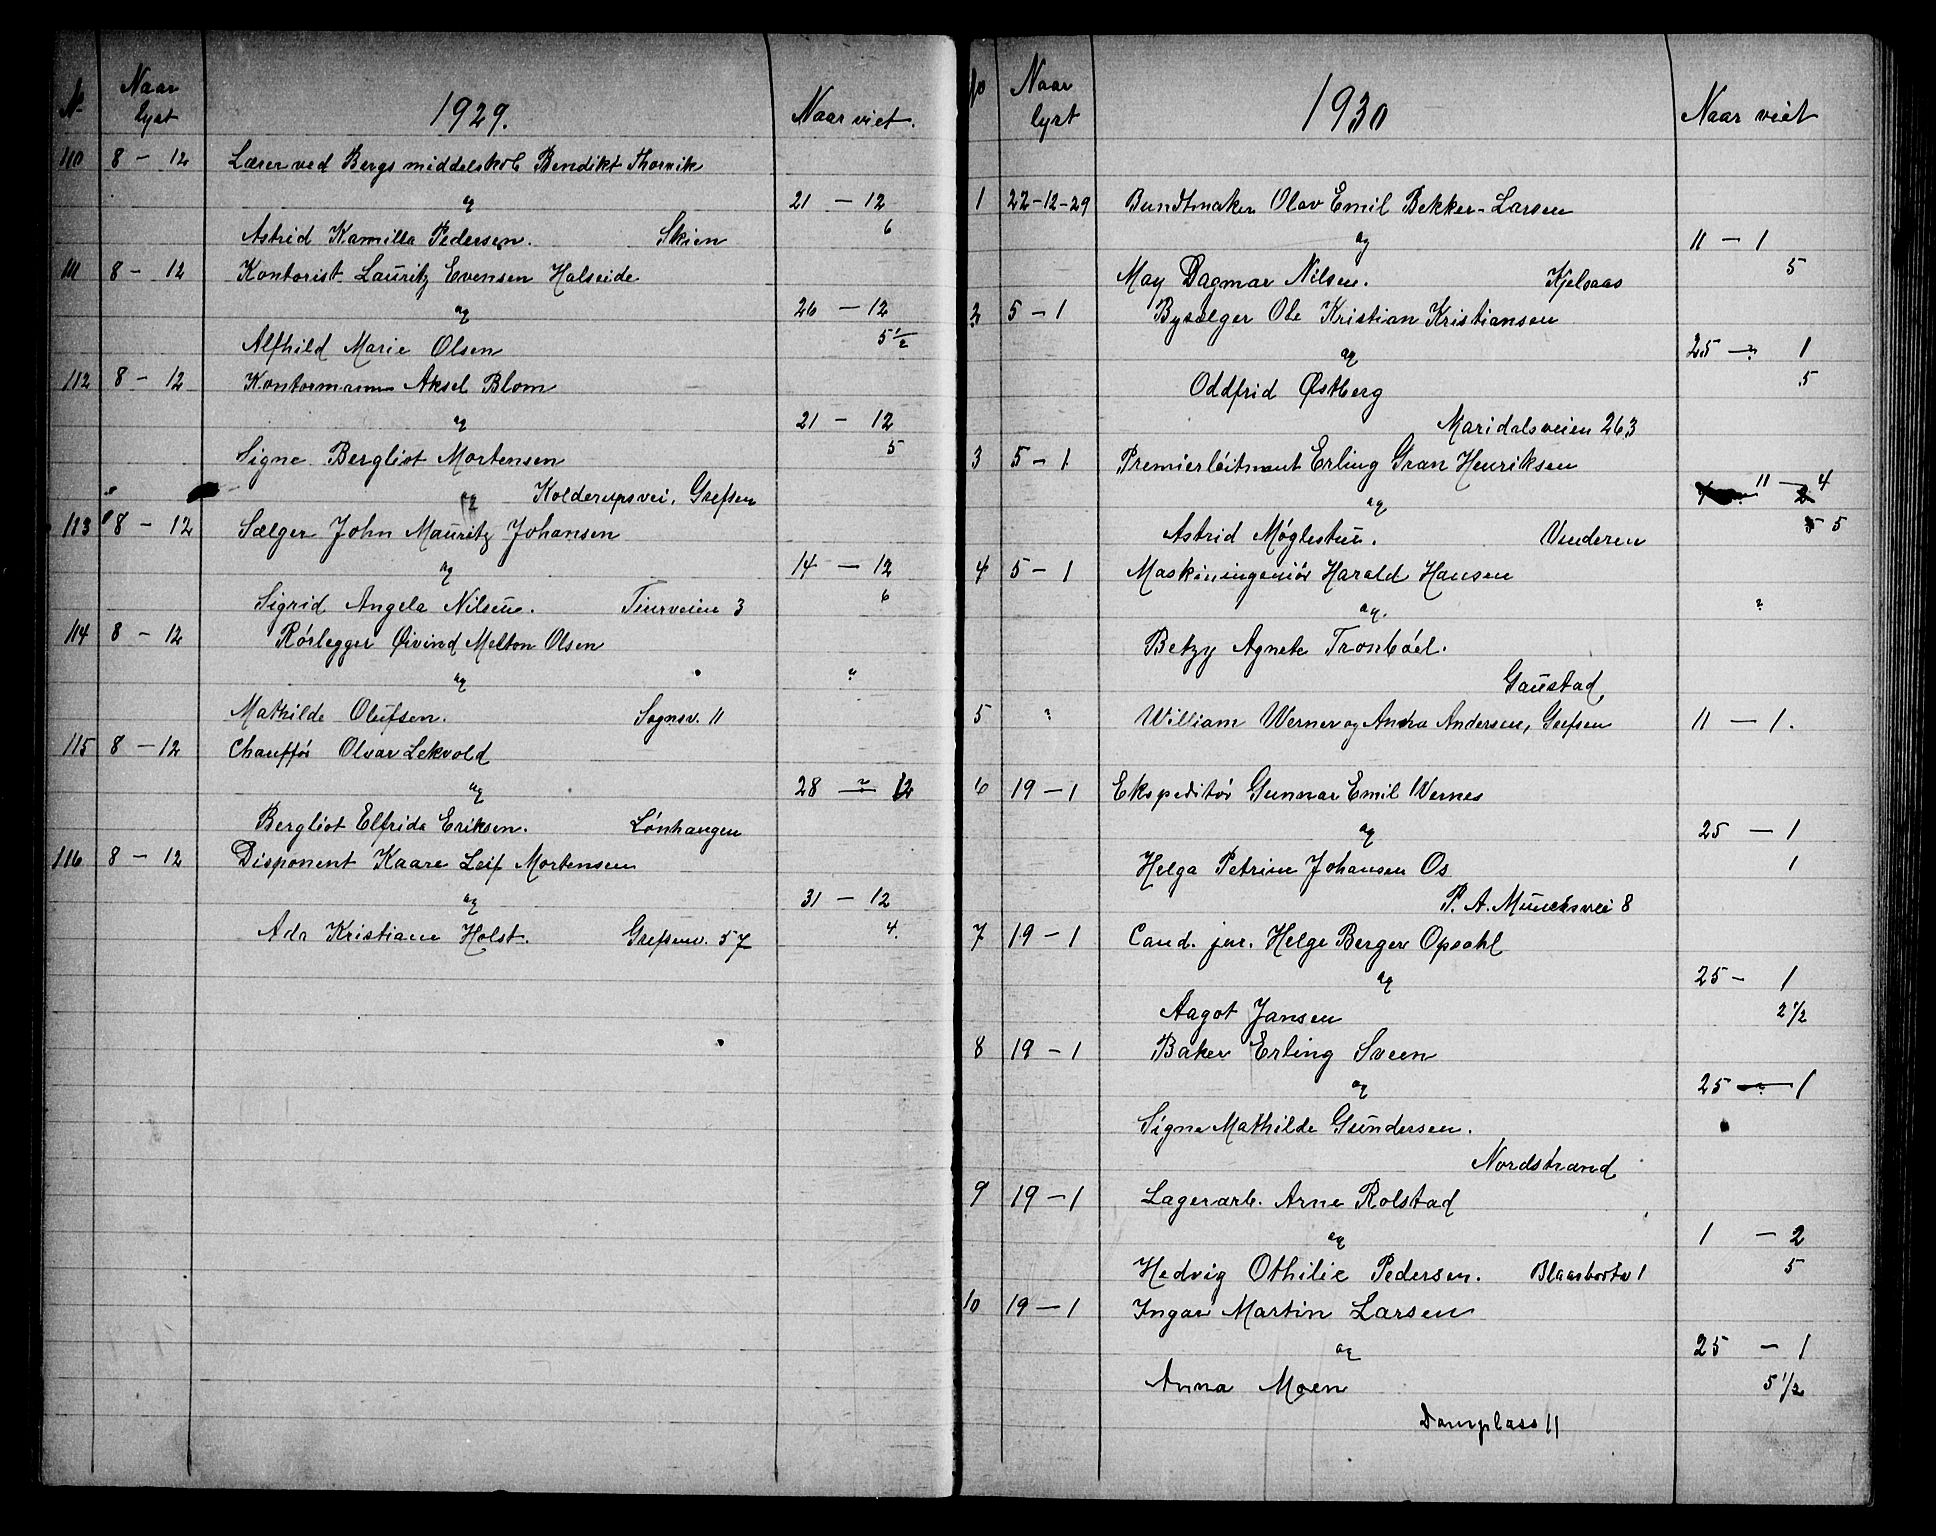 No Naar lyst 1929. Naar viet.
110 8 - 12 Lærer ved Bergs middelskole Bendikt Thorvik
og 21 - 12
Astrid Kamilla Pedersen. Skien 6
111 8 - 12 Kontorist Lauritz Evensen Halseide
og 26 - 12
Alfhild Marie Olsen 5 1/2
112 8 - 12 Kontormann Aksel Blom
og 21 - 12
Signe Bergliot Mortensen 5
og Kolderupsvei, Grefsen
113 8 - 12 Sælger John Mauritz Johansen
og 14 - 12
Sigrid Angela Nilsen. Tiurveien 3 6
114 8 - 12 Rørlegger Øivind Melton Olsen
og "
Mathilde Olufsen. Sognsv. 11
115 8 - 12 Chauffør Olvar Lekvold
og 28 - ? 12
Bergliot Elfrida Eriksen. Lønhaugen
116 8 - 12 Disponent Kaare Leif Mortensen
og 31 - 12
Ada Kristiane Holst. Grefsenv. 57 4.
No Naar lyst 1930 Naar viet
1 22-12-29 Bundtmaker Olav Emil Bekker-Larsen
og 11 - 1
May Dagmar Nilsen. Kjelsaas 5
2 5 - 1 Bysælger Ole Kristian Kristiansen
og 25 - ? 1
Oddfrid Østberg 5
Maridalsveien 263
3 5 - 1 Premierløitnant Erling Gran Henriksen
og 11 - 4
Astrid Møglestue. Vinderen 5
4 5 - 1 Maskiningeniør Harald Hansen
og. ?
Betzy Agnete Tronbøl.
Gaustad,
5 ? William Werner og Anna Andersen, Grefsen 11 - 1.
6 19 - 1 Ekspeditør Gunnar Emil Wernes
og 25 - 1
Helga Petrine Johansen Os 1
P. A. Munchsvei 8
7 19 - 1 Cand. jur. Helge Berger Opsahl
og 25 - 1
Aagot Jansen 2 1/2
8 19 - 1 Baker Erling Sveen
og 25 - ? 1
Signe Mathilde Gundersen.
Nordstrand
9 19 - 1 Lagerarb. Arne Rolstad
og 1 - 2
Hedvig Othilie Pedersen. 5
10 19 - 1 Ingar Martin Larsen
og 25 - 1
Anna Moen 5 1/2
Damplass 11